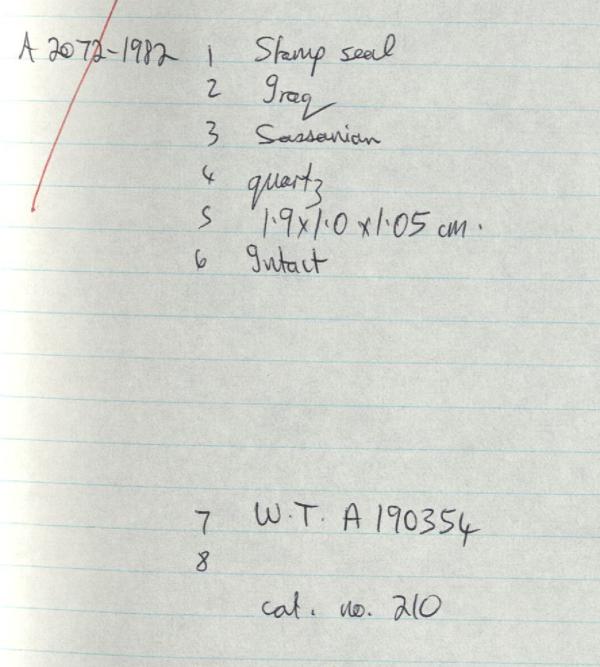 A 2072-1982 1 Stamp seal
2 Iraq
3 Sassanian
4 quartz
5 1.9 x 1.0 x 1.05 cm.
6 Intact
7 W.T. A 190354
8
cat. no. 210